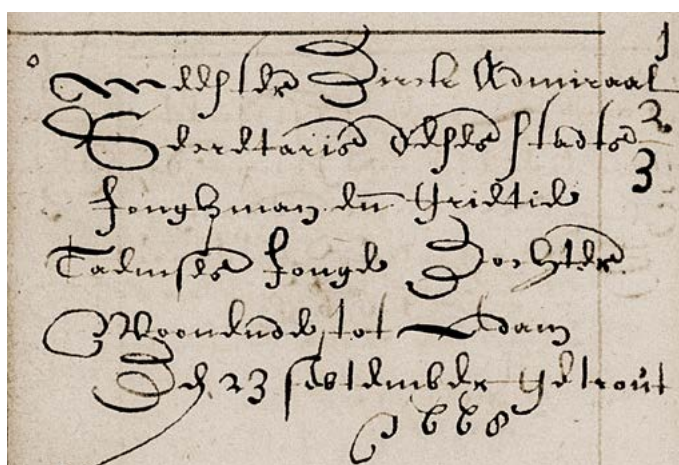 Meester Dirck Admiraal 1
Secretaris deeser stadts 2
Jonghman en Grietie 3
Taemses Jonge Dochter
Woonende tot Edam
Den 23 september getrout
1668